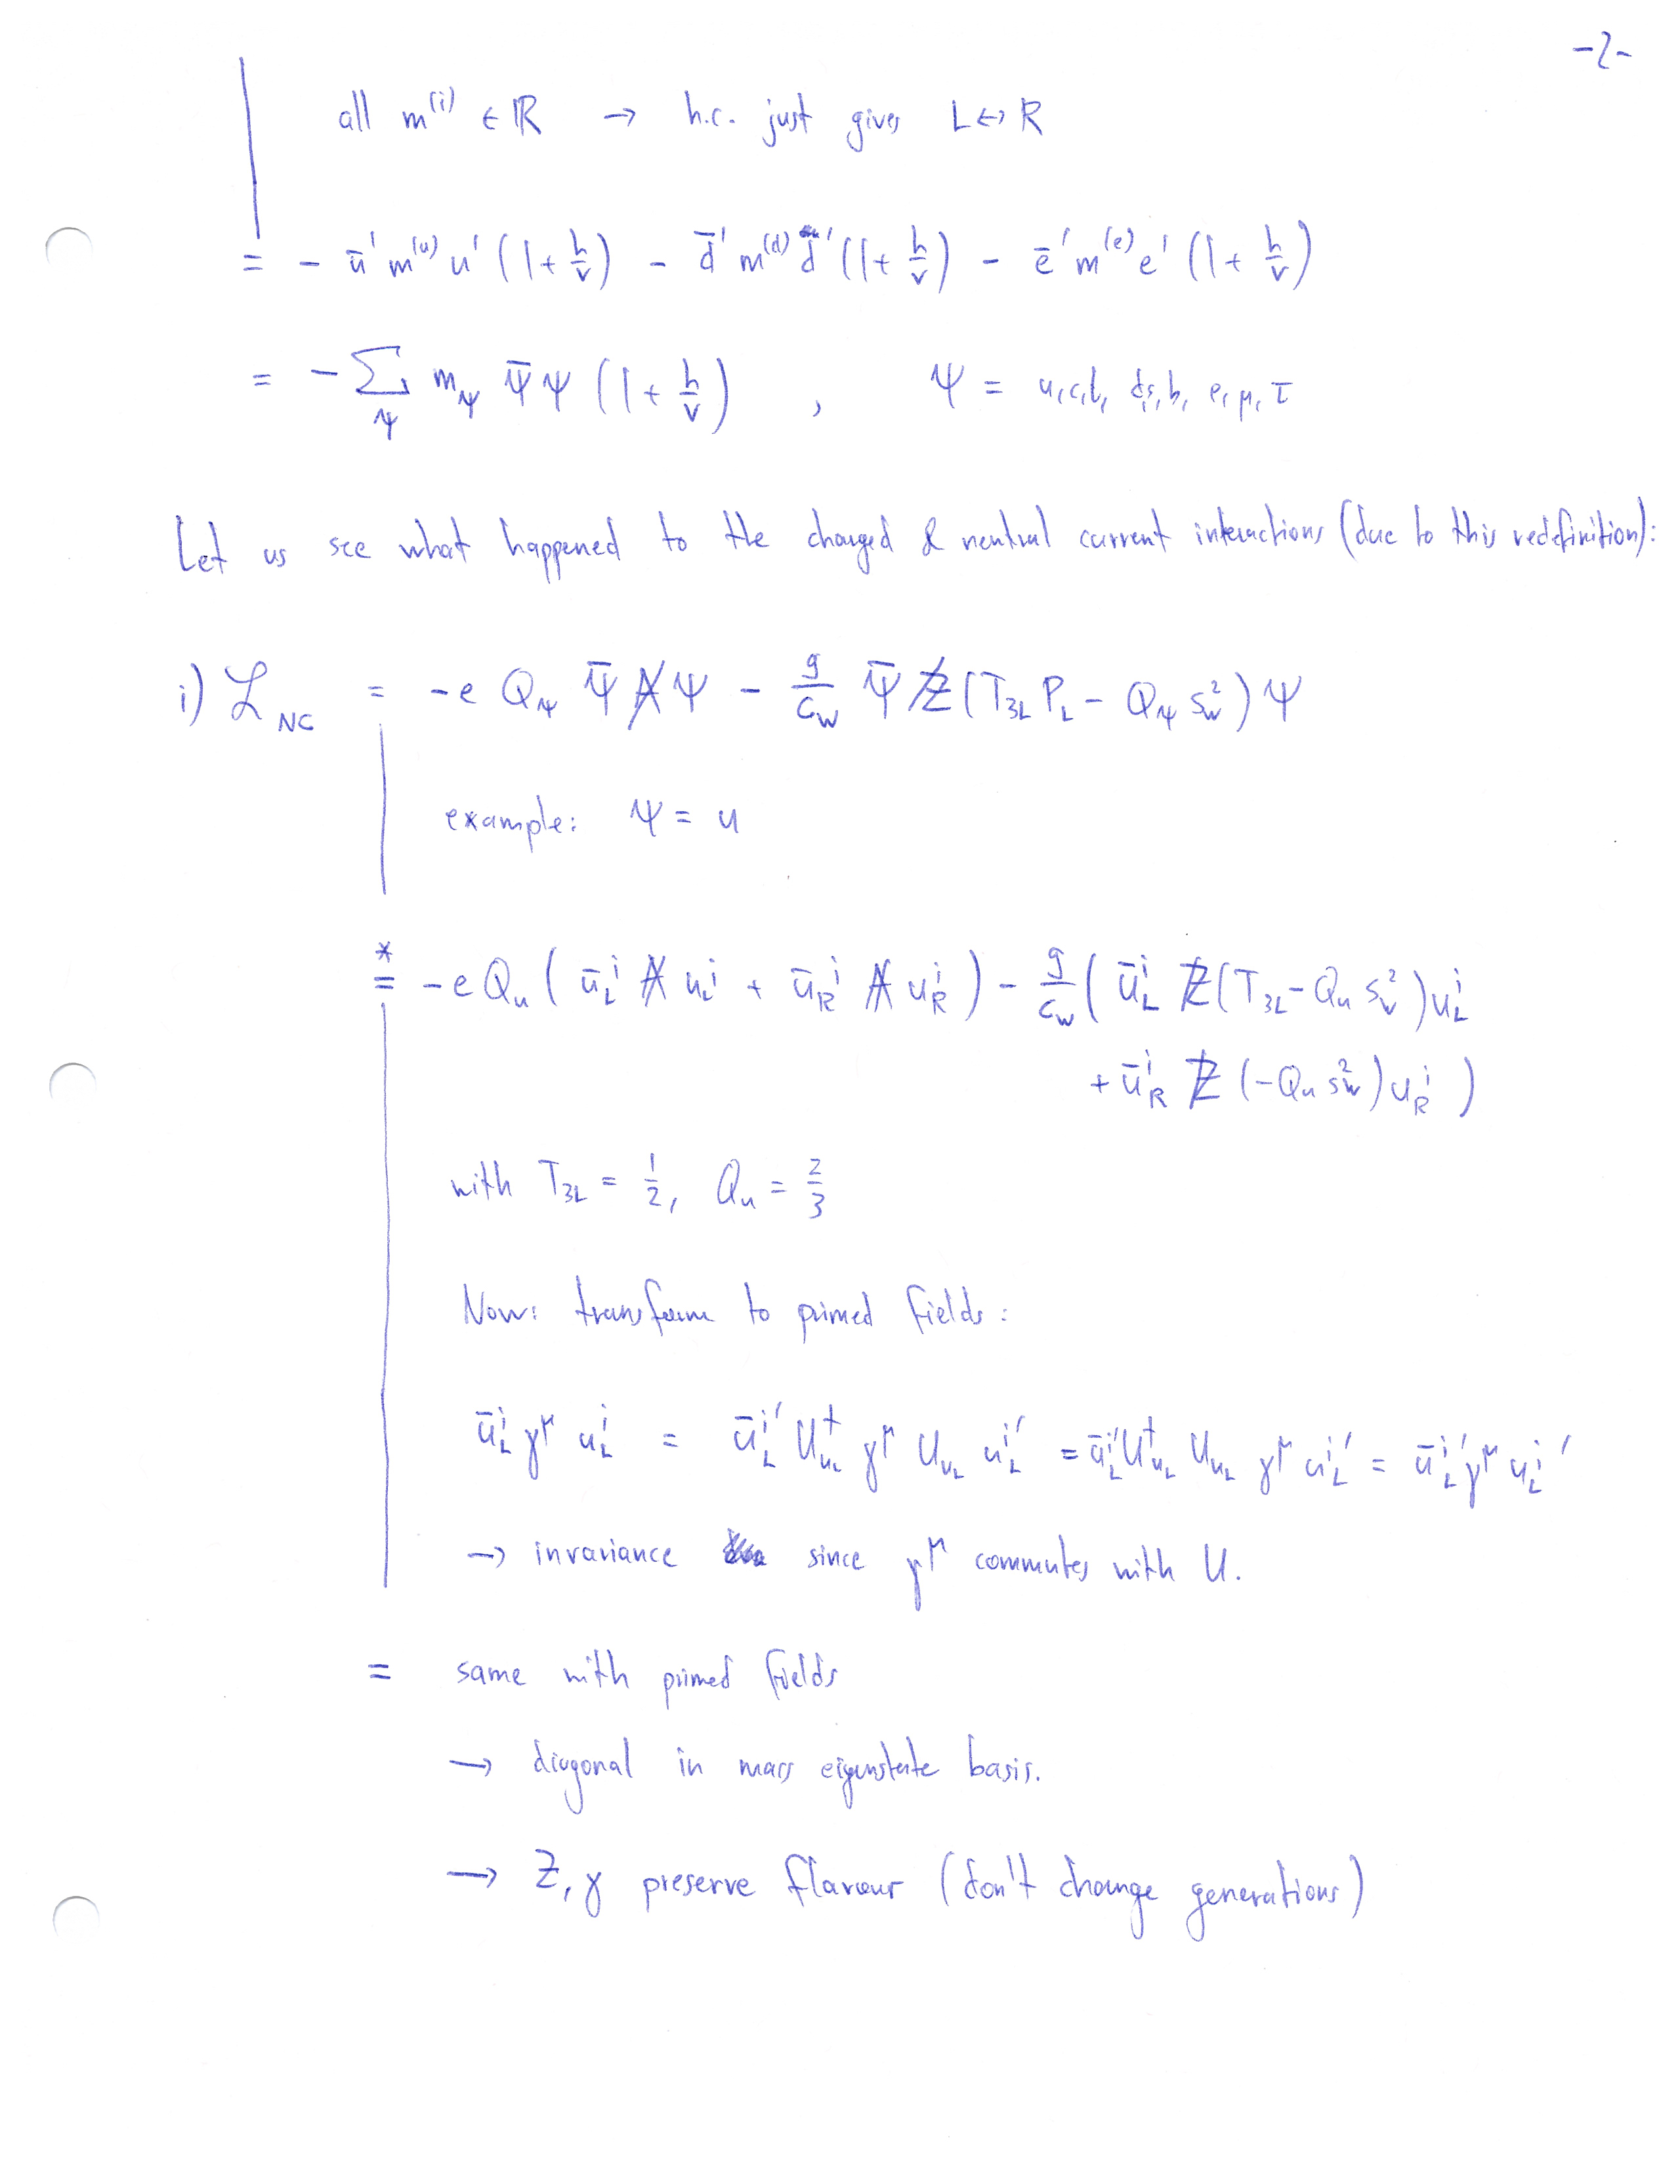 -2-
all m^(i) ∈ ℝ → h.c. just gives L↔R
= - ū' m^(u) u' (1 + h/v) - d̄' m^(d) d' (1 + h/v) - ē' m^(e) e' (1 + h/v)
= - ∑_ψ m_ψ ψ̄ ψ (1 + h/v) , ψ = u,c,t, d,s,b, e,μ,τ
Let us see what happened to the charged & neutral current interactions (due to this redefinition):
i) ℒ_NC = -e Q_ψ ψ̄ A̸ ψ - g/c_W ψ̄ Z̸ (T_3L P_L - Q_ψ s_W^2) ψ
example: ψ = u
*= -e Q_u ( ū_L^i A̸ u_L^i + ū_R^i A̸ u_R^i ) - g/c_W ( ū_L^i Z̸ (T_3L - Q_u s_W^2) u_L^i
+ ū_R^i Z̸ (-Q_u s_W^2) u_R^i )
with T_3L = 1/2, Q_u = 2/3
Now: transform to primed fields:
ū_L^i γ^μ u_L^i = ū_L^i' U_uL^† γ^μ U_uL u_L^i' = ū_L^i' U_uL^† U_uL γ^μ u_L^i' = ū_L^i' γ^μ u_L^i'
→ invariance since γ^μ commutes with U.
= same with primed fields
→ diagonal in mass eigenstate basis.
→ Z, γ preserve flavour (don't change generations)